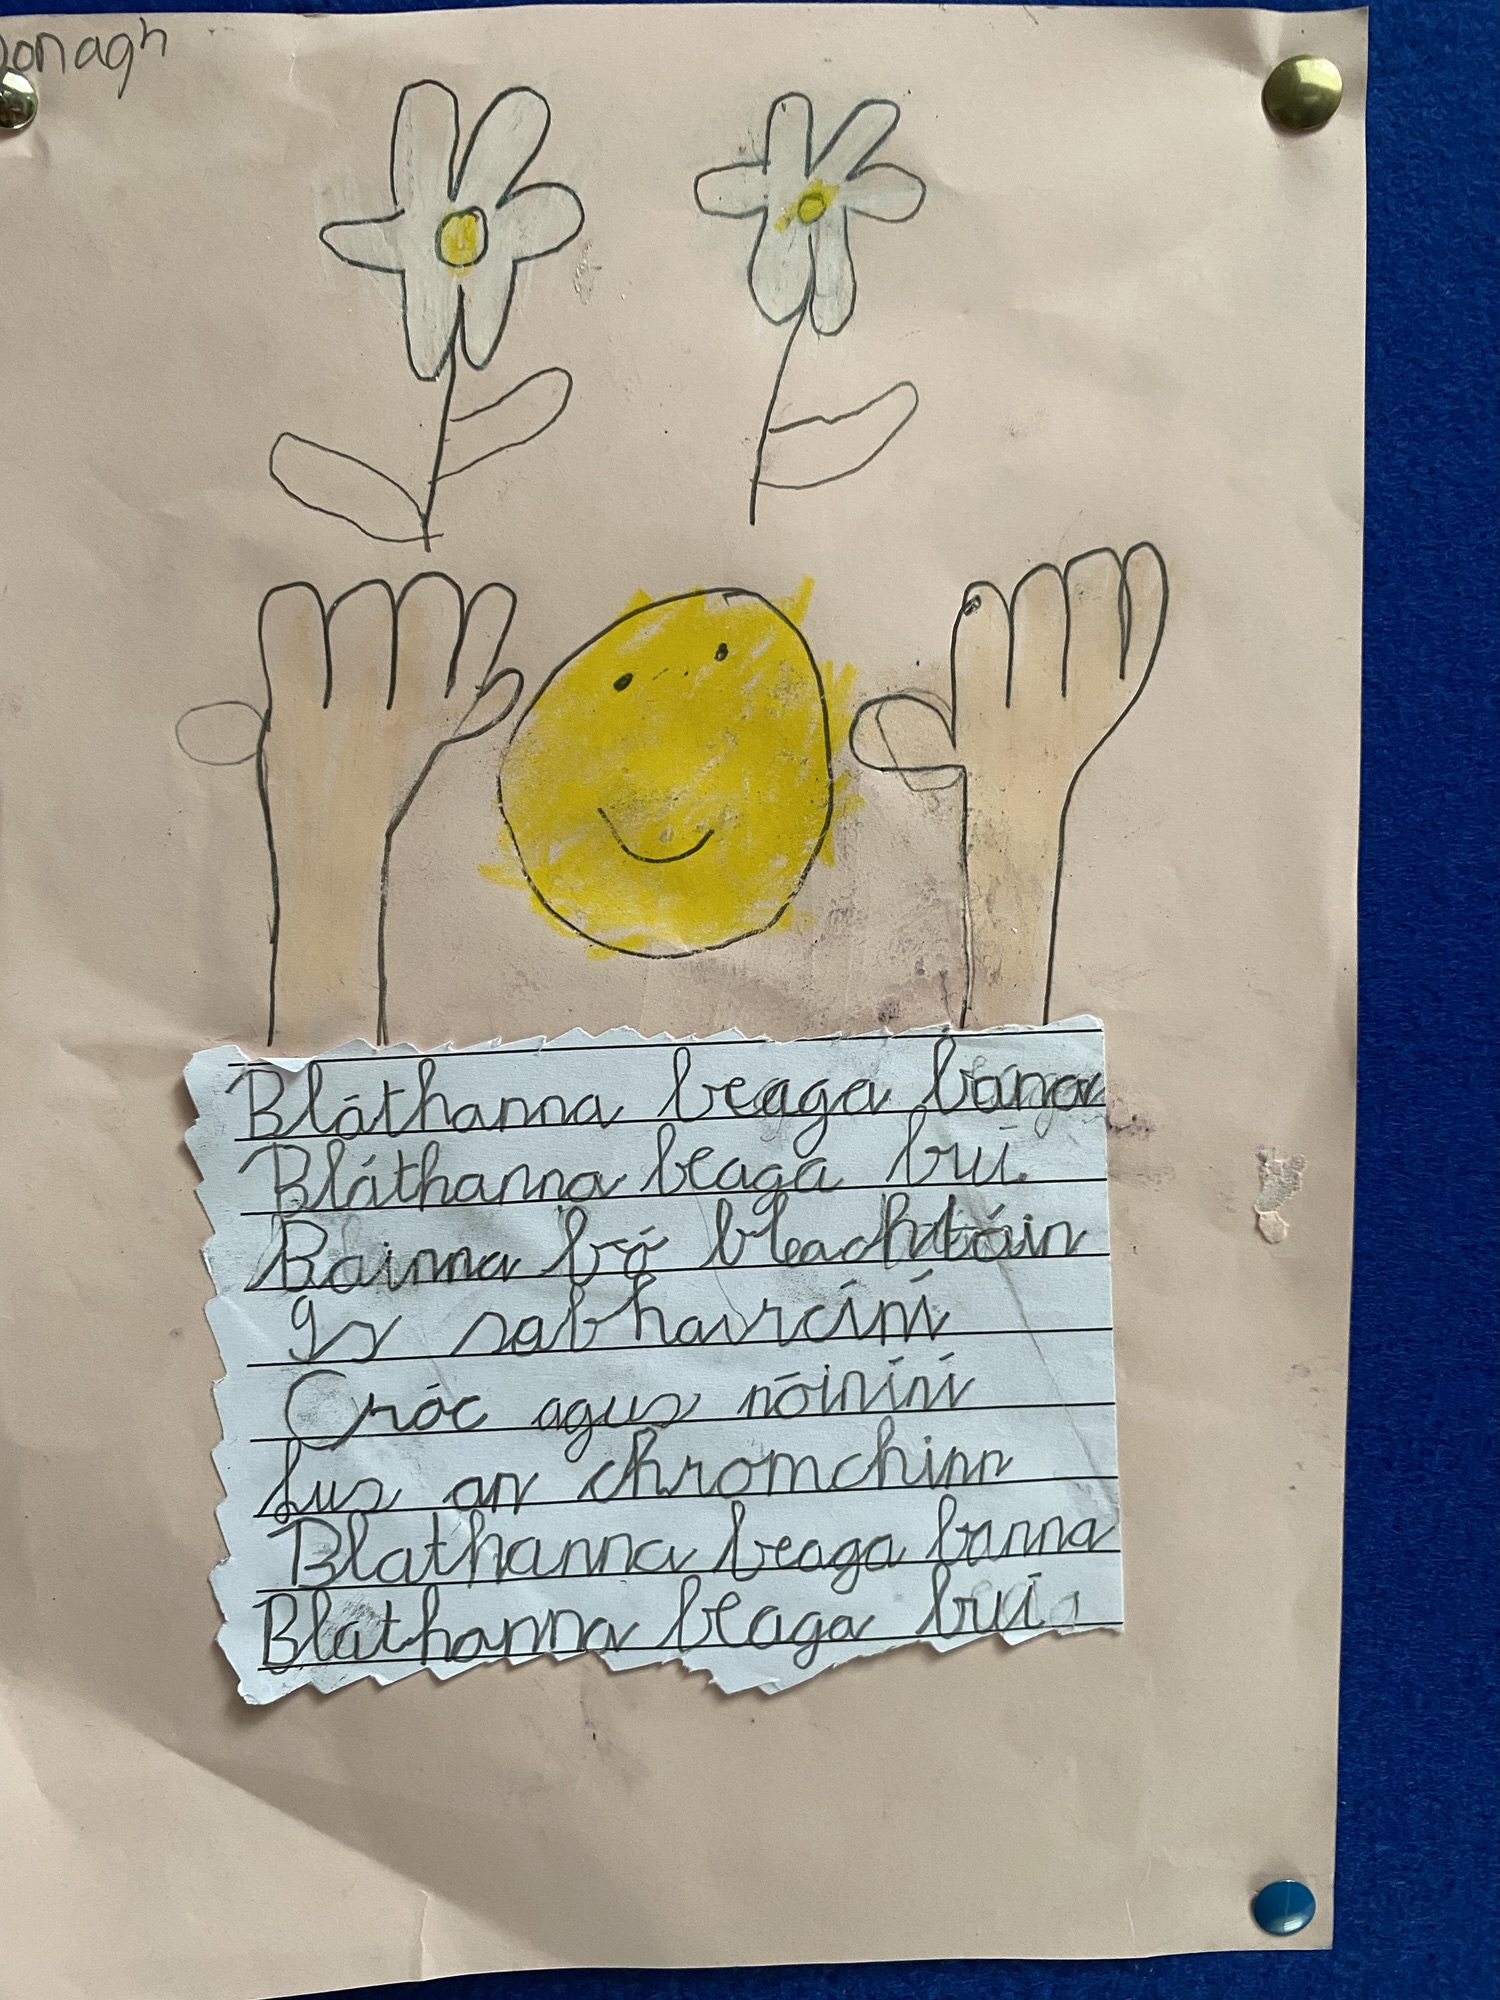 Donagh
Bláthanna beaga bana
Bláthanna beaga buí.
Bainna bó bleachtáin
Is sabhaircíní
Cróc agus nóiníní
lus an chromchinn
Blathanna beaga banna
Blathanna beaga buí.